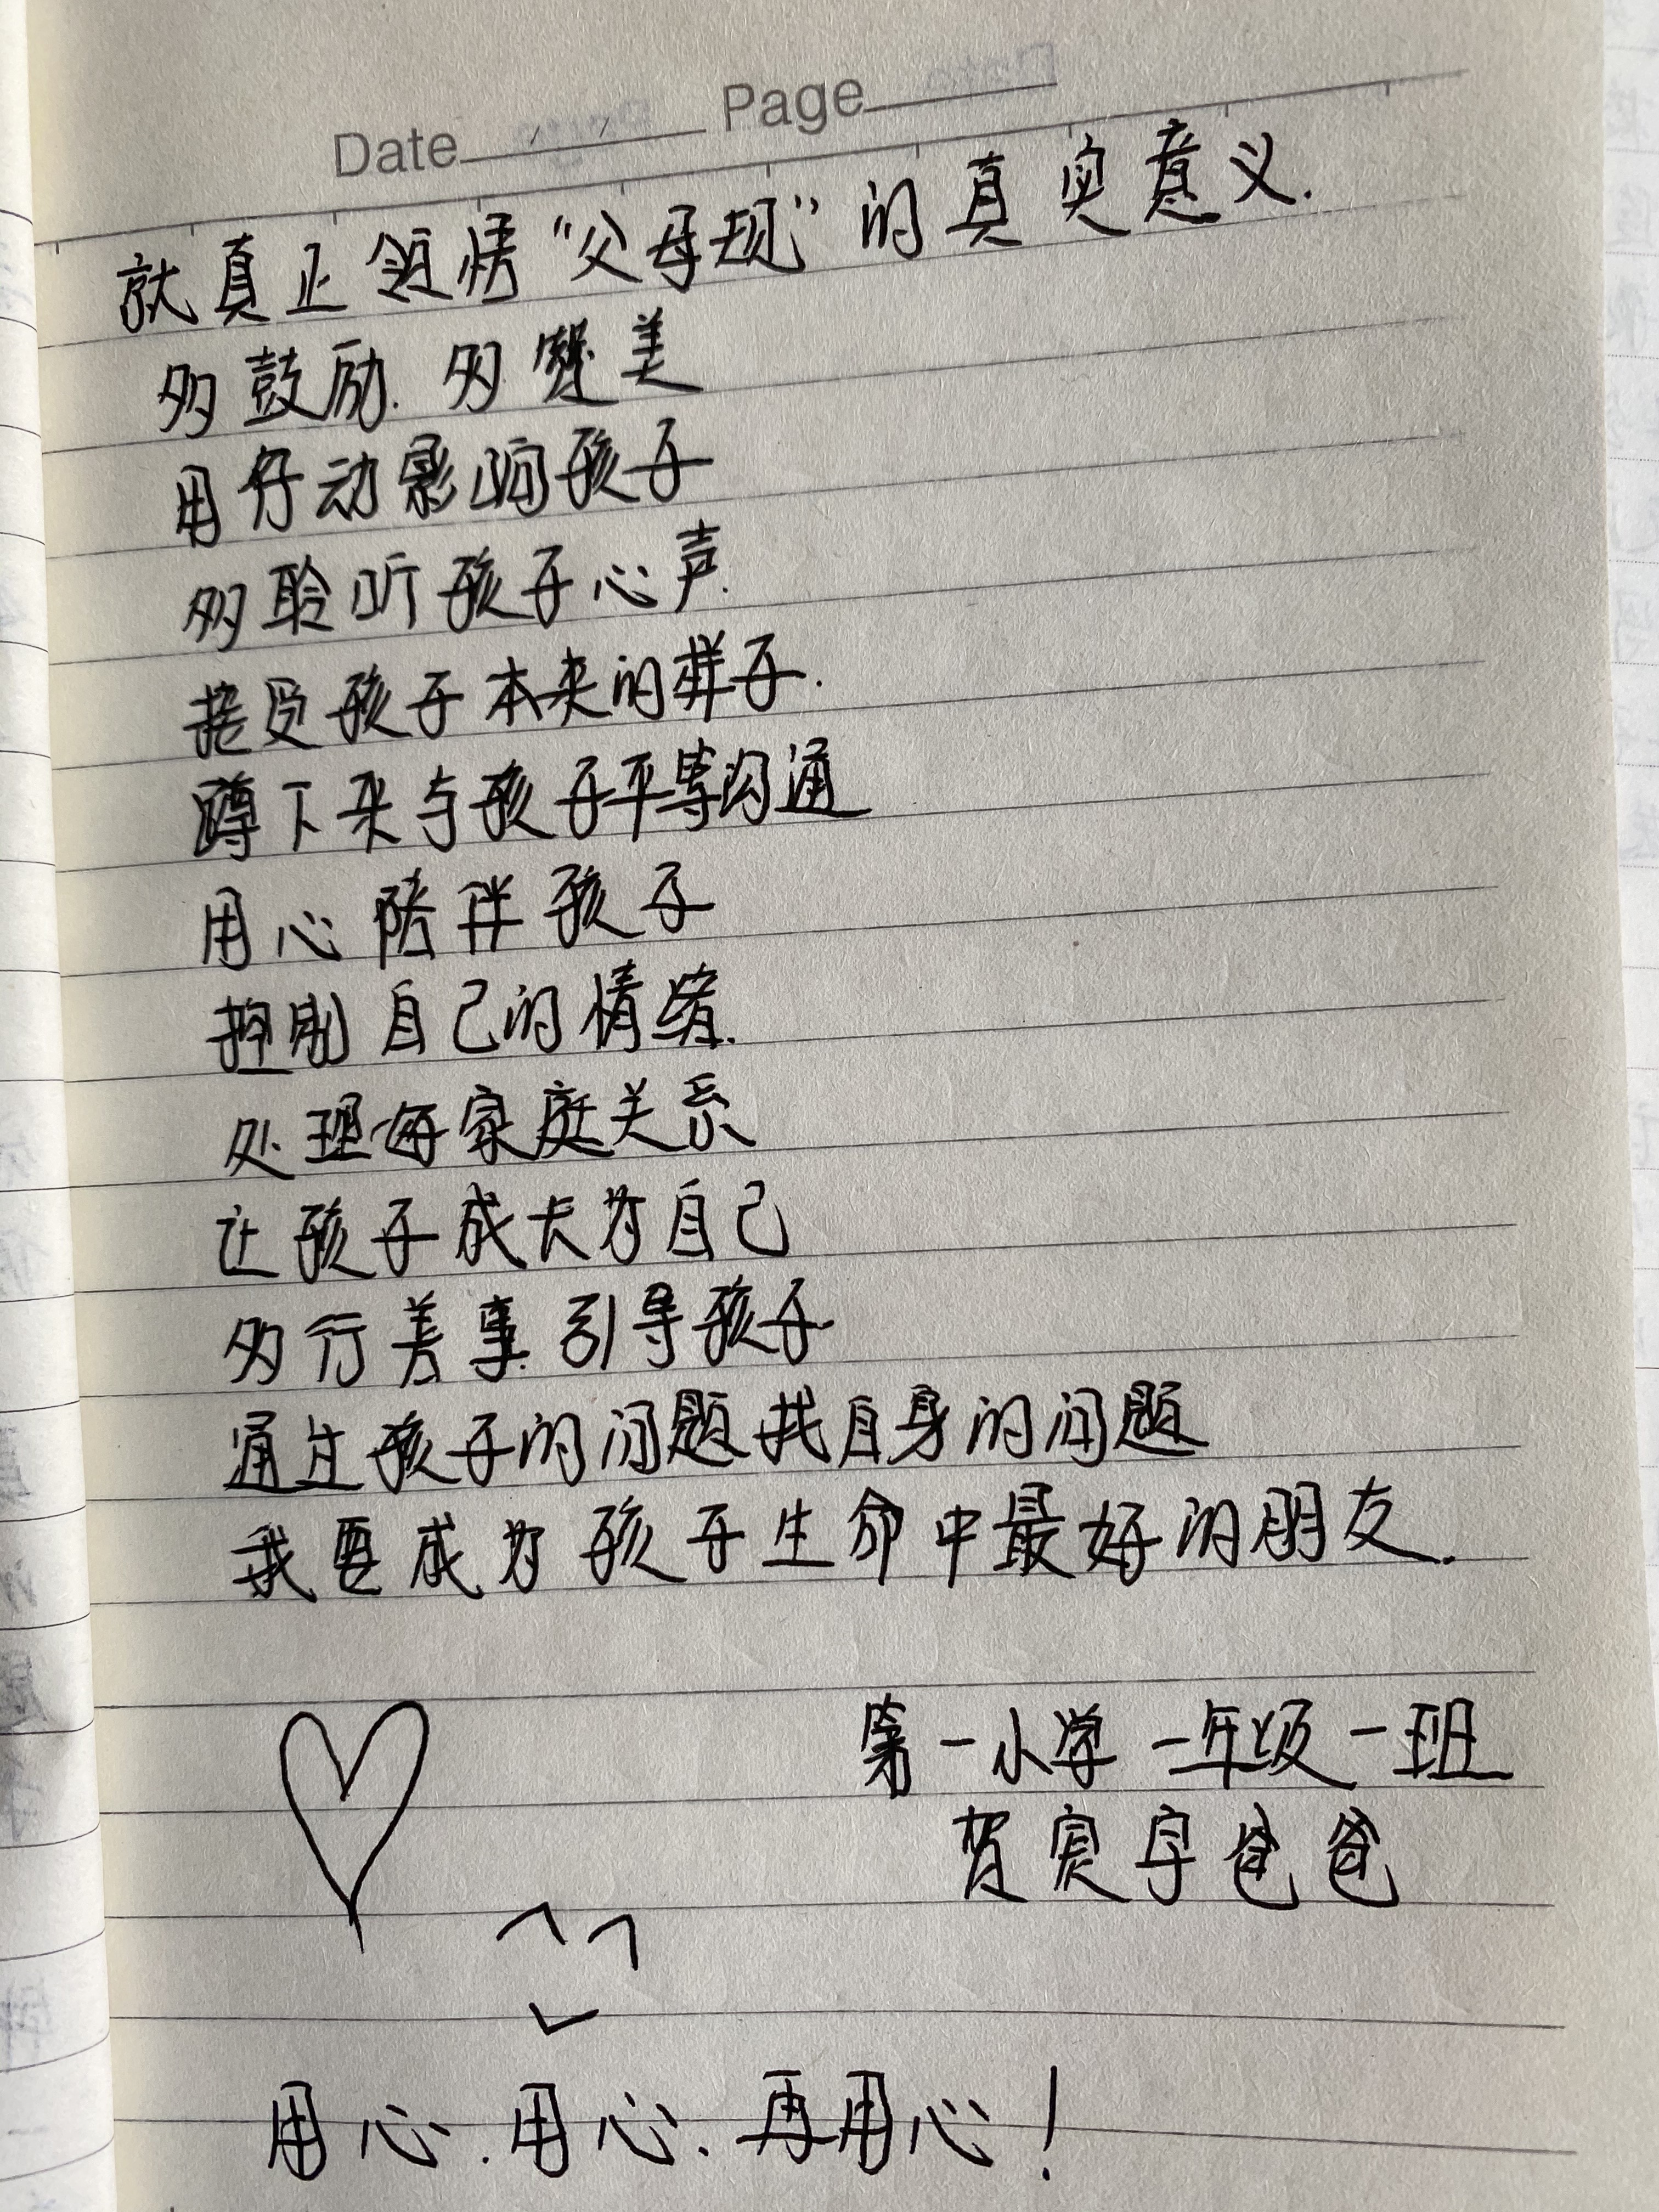 Date Page
就真正领悟“父母规”的真实意义.
多鼓励.多赞美
用行动影响孩子
多聆听孩子心声.
接受孩子本来的样子.
蹲下来与孩子平等沟通
用心陪伴孩子
控制自己的情绪.
处理每家庭关系
让孩子成长为自己
多行善事.引导孩子
通过孩子的问题找自身的问题
我要成为孩子生命中最好的朋友.
第一小学一年级一班
贺宾宇爸爸
用心.用心.再用心!